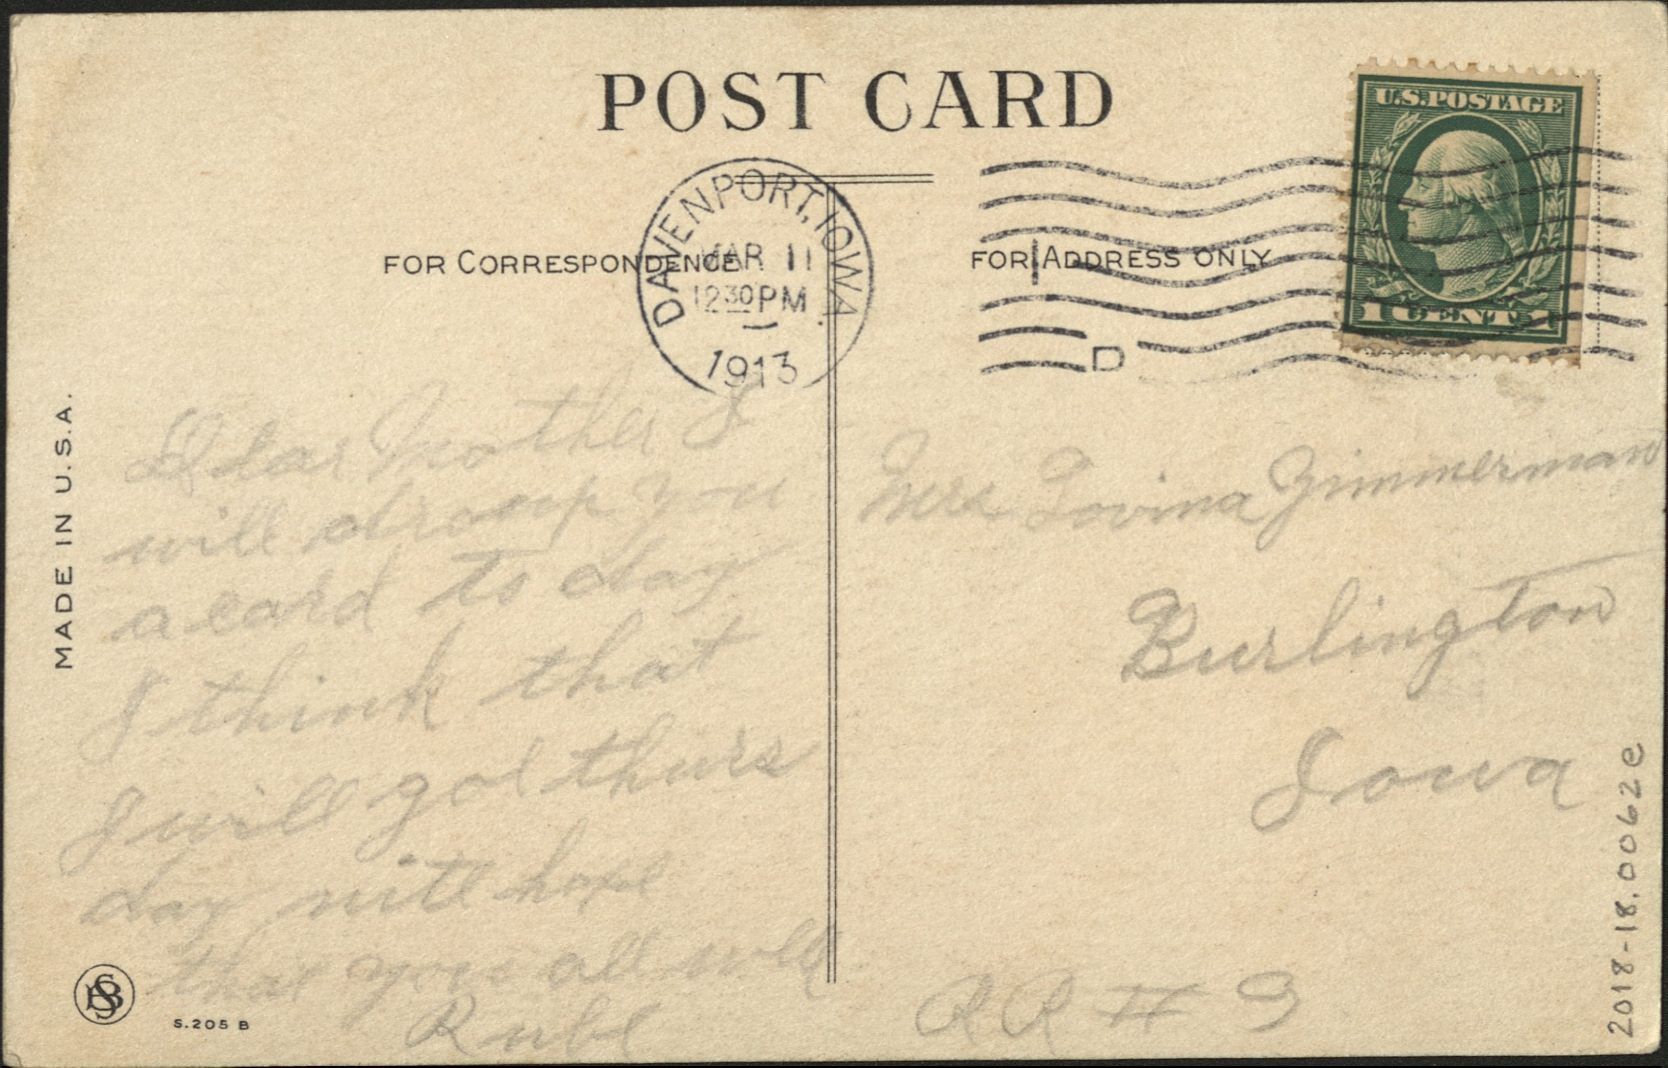 POST CARD
U.S. POSTAGE
1 CENTS 1
DAVENPORT, IOWA
MAR 11
12 30 PM
1913
D
FOR CORRESPONDENCE
FOR ADDRESS ONLY
MADE IN U.S.A.
Dear Mother I
will droup you
a card to day
I think that
I will gol thurs
day nite hope
that you all well
Rube
Mrs Lovina Zimmerman
Burlington
Iowa
RR # 3
S.205 B
2018-18.0062e